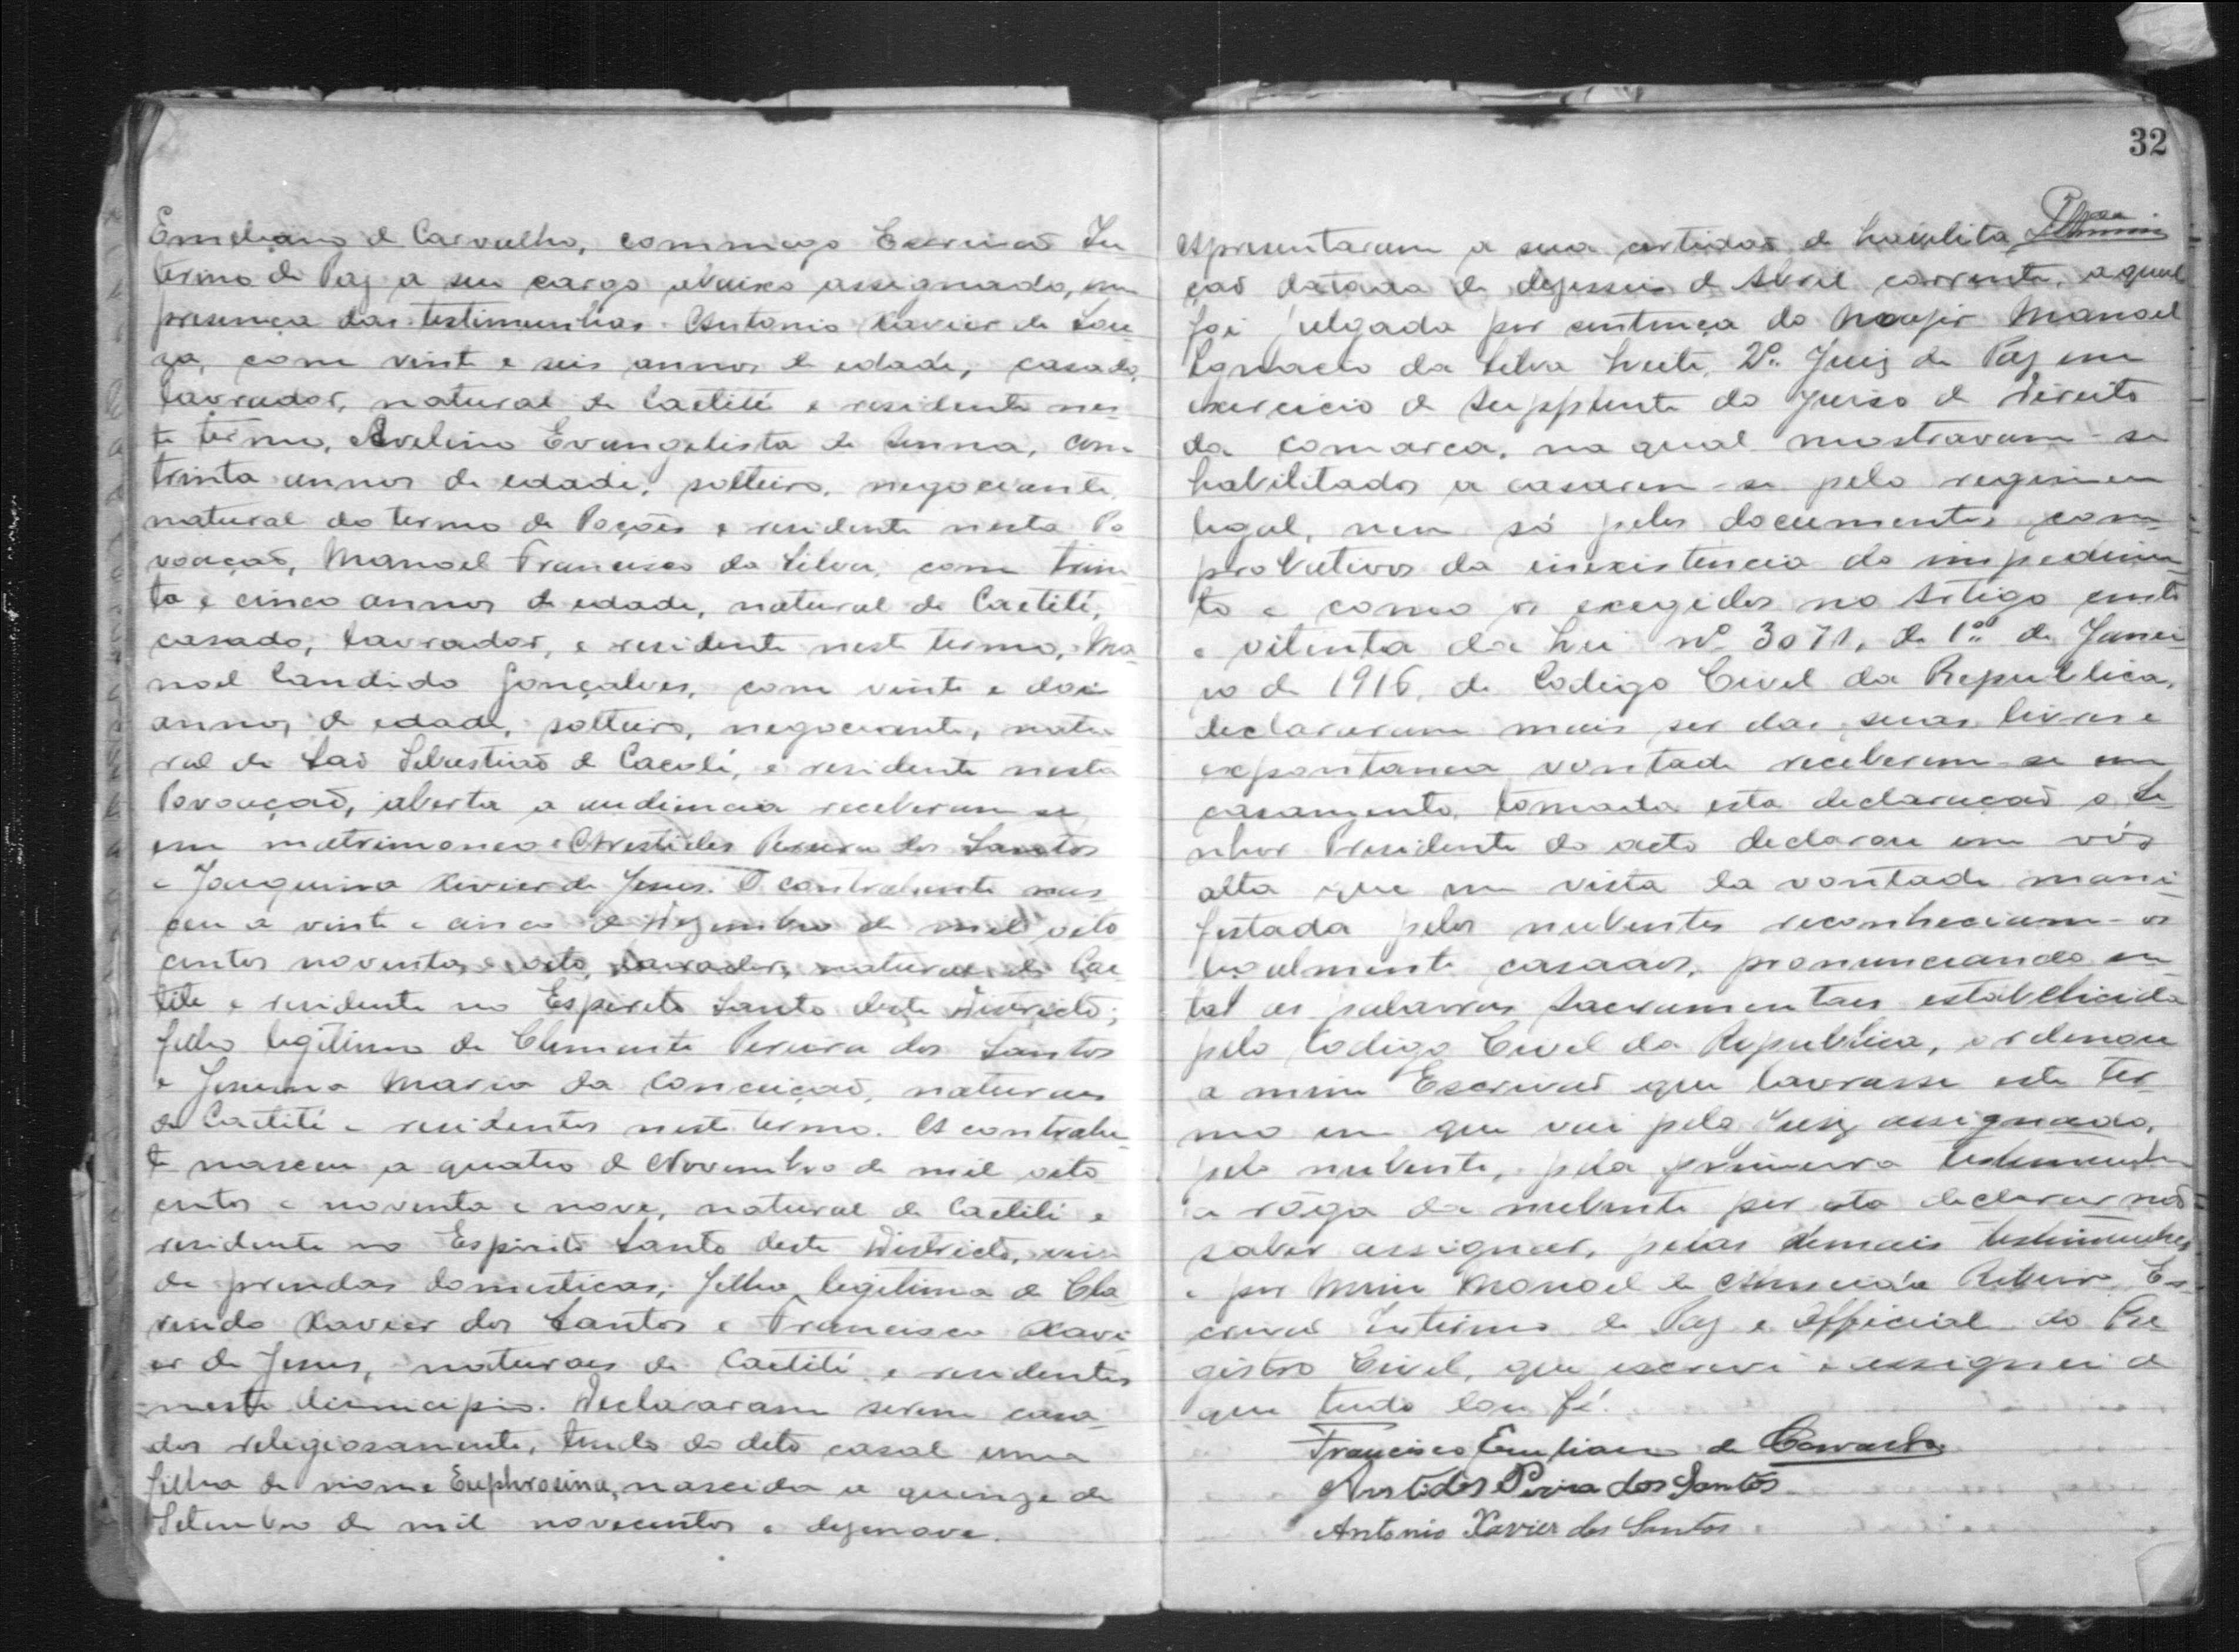 Emeliano de Carvalho, commigo Escrivaõ In-
terino de Paz a seu cargo abaixo assignado, em
presença das testimunhas Antonio Xavier de Sou-
za, com vinte e seis annos de edade, casado,
lavrador, natural de Caetité e residente nes-
te termo, Avelino Evangelista de Senna, com
trinta annos de edade, solteiro, negociante,
natural do termo de Poções e residente nesta Po
voaçaõ, Manoel Francisco da Silva, com trin-
ta e cinco annos de edade, natural de Caetité,
casado, lavrador, e residente neste termo, Ma-
noel Candido Gonçalves, com vinte e dois
annos de edade, solteiro, negociante, natu
ral de Saõ Sebastiaõ de Caculé, e residente nesta
Povoaçaõ, aberta a audiencia receberam se
em matrimoneo Arestides Pereira dos Santos
e Joaquina Xavier de Jesus. O contrahente nas-
ceu a vinte e cinco de Dezembro de mil oito
centos noventa e oito, lavrador, natural de Cae
tité e residente no Espirito Santo deste Districto;
filho legitimo de Clemente Pereira dos Santos
e Jesuina Maria da Conceiçaõ, naturaes
de Caetité e residentes neste termo. A contrahen-
te nasceu a quatro de Novembro de mil oito
centos e noventa e nove, natural de Caetité e
residente no Espirito Santo deste Districto,
de prendas domesticas; filha legitima de Cla-
rindo Xavier dos Santos e Francisca Xavi-
er de Jesus, naturaes de Caetité e residentes
neste Municipio. Declararam serem casa-
dos religiosamente, tendo do dito casal uma
filha de nome Euphrosina, nascida a quinze de
Setembro de mil novecentos e dezenove.
32
Apresentaram a sua certidaõ de habilita
çaõ datada de dezesseis de Abril corrente, a qual
foi julgada por sentença do Major Manoel
Ignacio da Silva Leite, 2º. Juiz de Paz em
exercicio de Supplente do Juiso de Direito
da Comarca, na qual mostravam-se
habilitados a casarem-se pelo regimen
legal, nem só pelos documentos com-
probativos da inexistencia do impedimen
to e como os exegidos no Artigo cento
e oitenta da Lei nº 3071, de 1º de Janei-
ro de 1916, do Codigo Civel da Republica,
declararam mais ser das suas livres e
expontanea vontade receberem-se em
casamento, tomada esta declaraçaõ o Se-
nhor Presidente do acto declarou em vós
alta que em vista da vontade mani-
festada pelos nubentes reconheciam-os
legalmente casados, pronunciando en-
taõ as palavras Sacramentaes estabelicida
pelo Codigo Civel da Republica, ordenou
a mim Escrivaõ que lavrasse este ter-
mo em que vai pelo Juiz assignado,
pelo nubente, pela primeira testimunha
a rôgo da nubente por esta declarar naõ
saber assignar, pelas demais testimunhas
e por mim Manoel de Ribeiro, Es-
crivaõ Interino de Paz e Official do Re
gistro Civel, que escrevi e assignei de
que tudo dou fé.
Francisco Emeliano de Carvalho
Arestides Pereira dos Santos
Antonio Xavier dos Santos